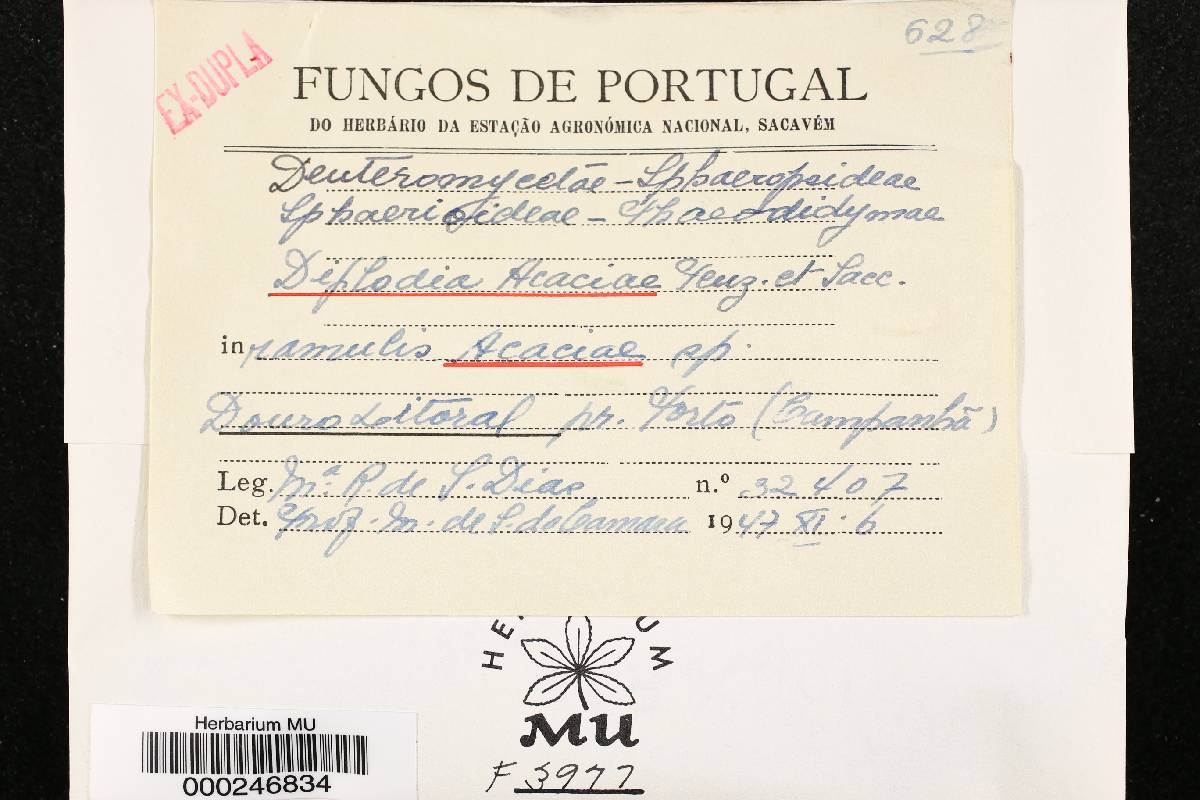 628
EX-DUPLA
FUNGOS DE PORTUGAL
DO HERBÁRIO DA ESTAÇÃO AGRONÓMICA NACIONAL, SACAVÉM
Deuteromycetae – Sphaeropsideae
Sphaerioideae – Phaeodidymae
Diplodia Acaciae Penz. et Sacc.
in ramulis Acaciae sp.
Douro Litoral pr. Porto (Campanhã)
Leg. Mª. R. de S. Dias n.º 32407
Det. Prof. M. de S. da Camara 1947 XI. 6
HE UM
MU
Herbarium MU
000246834
F 3977